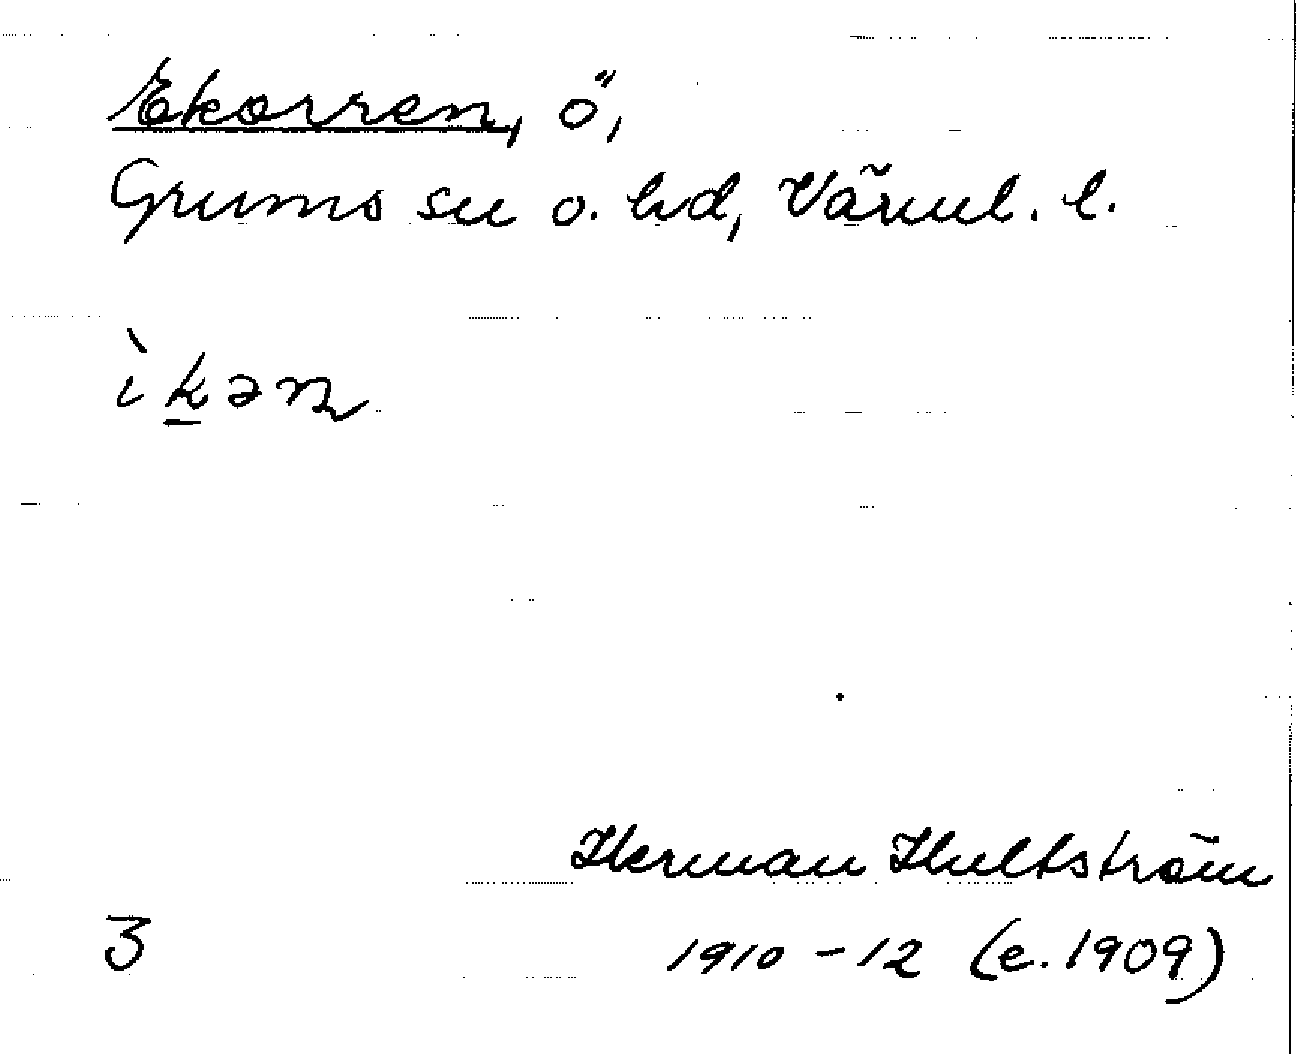 Ekorren, ö,
Grums sn o. hd, Värml. l.
ìkən
3
Herman Hultström
1910-12 (e. 1909)